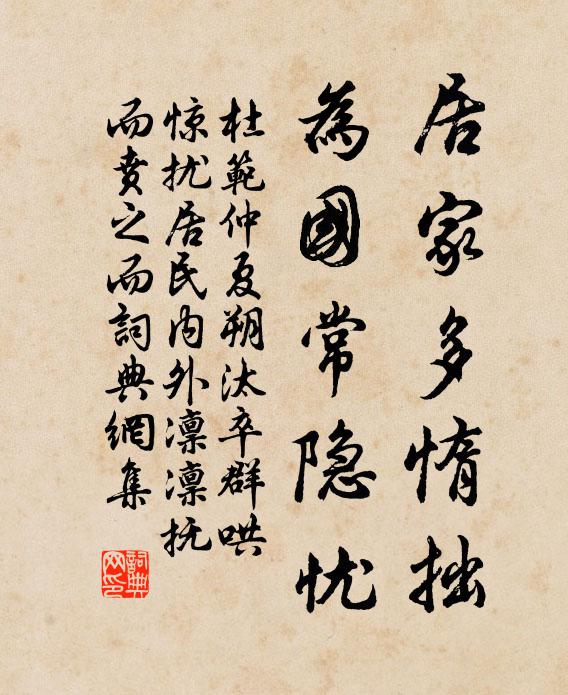 居家多惰拙
為國常隐忧
杜範仲夏朔汰卒群哄
惊扰居民内外凛凛抚
而贲之而詞典網集
詞典网印